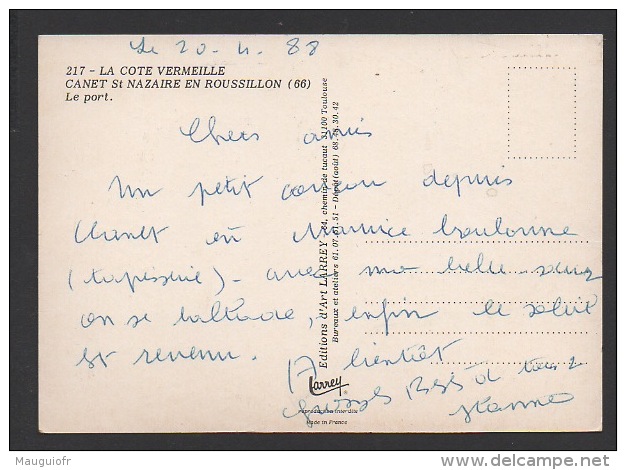 Le 20-4-88
217 - LA COTE VERMEILLE
CANET St NAZAIRE EN ROUSSILLON (66)
Le port.
Chers amis
Un petit coucou depuis
Canet où Maurice boulonne
(tapisserie) - avec ma belle-sœur
on se ballade, enfin le soleil
est revenu.
A bientôt
Bises à tous 2
Jeanne
Editions d'Art LARREY - 24, chemin de tucaut 31100 Toulouse
Bureaux et ateliers 61.07.61.51 - Dépôt (août) 68.80.30.42
Larrey
reproduction interdite
Made in France
Mauguiofr
www.delcampe.net